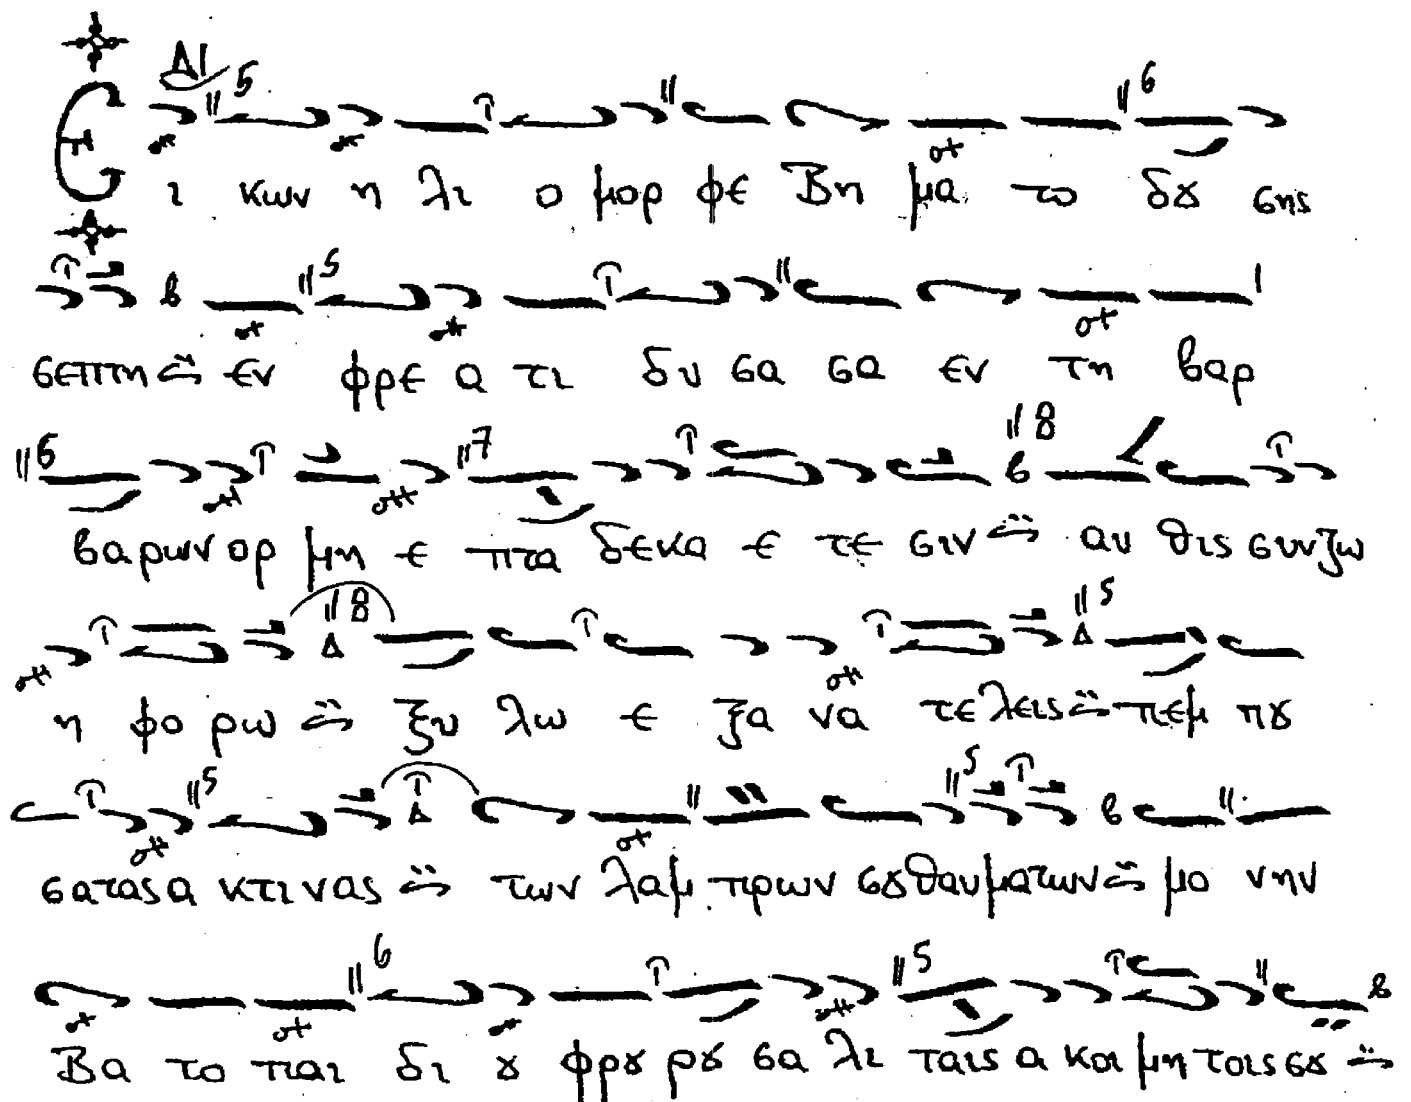 Ει κων η λι ο μορ φε Βη μα το δȣ σης
σεπτη εν φρε α τι δυ σα σα εν τη βαρ
βαρων ορ μη ε πτα δεκα ε τε σιν αυ θις συνζω
η φο ρω ξυ λω ε ξα να τε λεις πεμ πȣ
σα τας α κτι νας των λαμ πρων σȣ θαυματων μο νην
Βα το παι δι ȣ φρȣ ρȣ σα λι ταις α κοι μη τοις σȣ